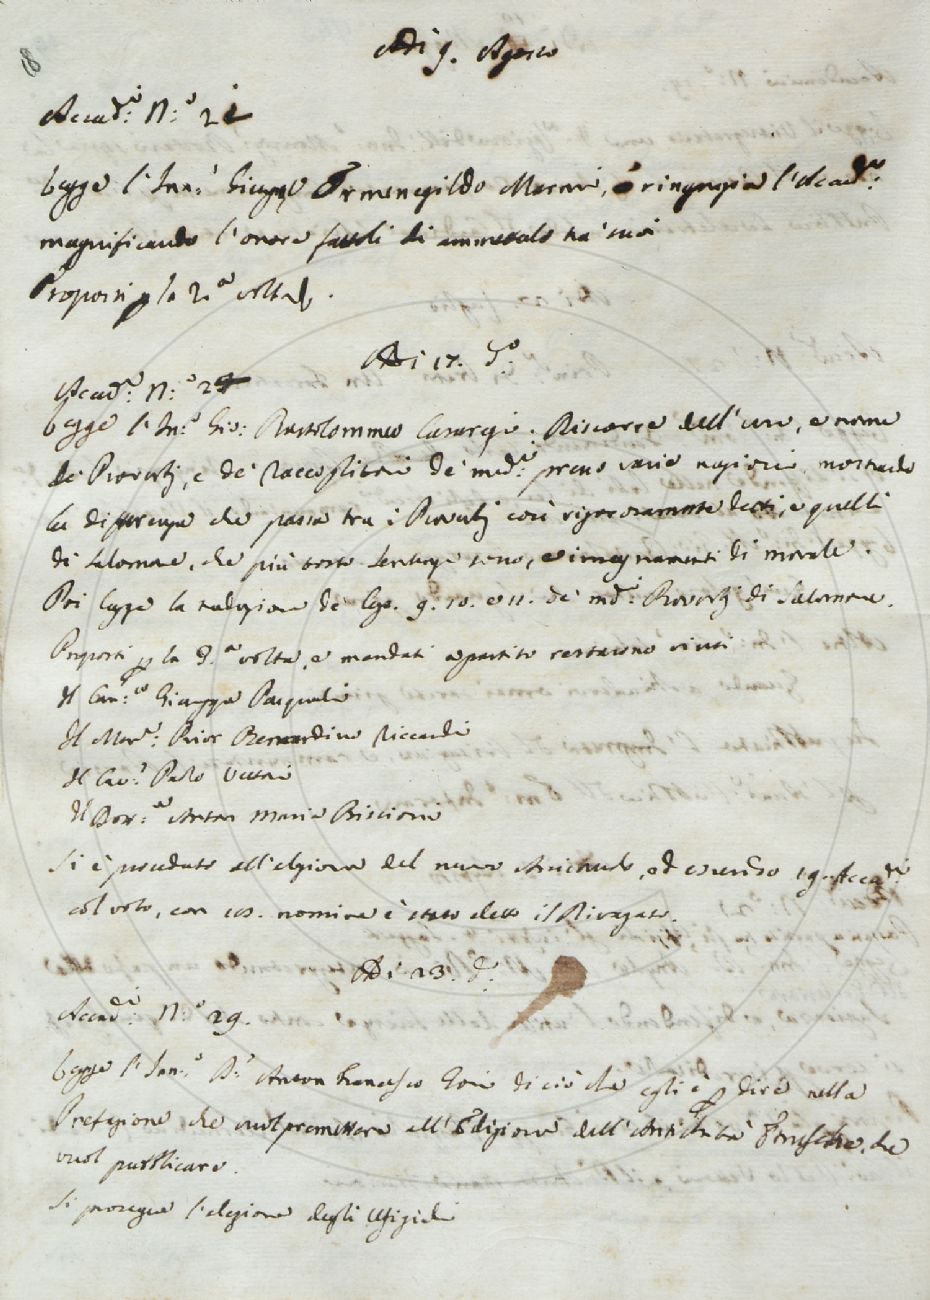 Adi 9. Agosto
Accad.i N.o 2
Legge l'Inn.o Giusep.e Ermenegildo, e ringrazia l'Accad.a
magnificando l'onore fattoli di ammetterlo tra' suoi
Proposti p la 2.a volta
Adi 17. d.o
Accad.i N.o 2
Legge l'In.o Gio: Bartolommeo Casaregi: Ricerce dell'uso, e nome
de' Proverbj, e de' Raccoglitori de' med.i presso varie nazioni, mostrando
la differenza che passa tra i Proverbj così rigorosamente detti, e quelli
di Salomone, che più tosto sentenze sono, e insegnamenti di morale.
Poi legge la traduzione de' Cap. 9. 10. e 11. de' md.i Proverbj di Salomone.
Proposti p la 3.a volta, e mandati a partito restarono vinti
Il Can.co Giuseppe Pasquali
Il Mar.e Prior Bernardino Riccardi
Il Cav.e Paolo Vettori
Il Dott.re Anton Maria Biscioni
Si è proceduto all'elezione del nuovo Arciconsolo, ed essendo 19. Accad.i
col voto, con nomine è stato detto il Rivagato.
Adi 23. d.o
Accad.i N.o 29.
Legge l'Inn.o D.r Anton Francesco Gori di ciò che egli è p dire nella
Prefazione che vuol premettere all'Edizione dell'Antichità Etrusche, che
vuol pubblicare.
Si prosegue l'elezione degli Ufizidi